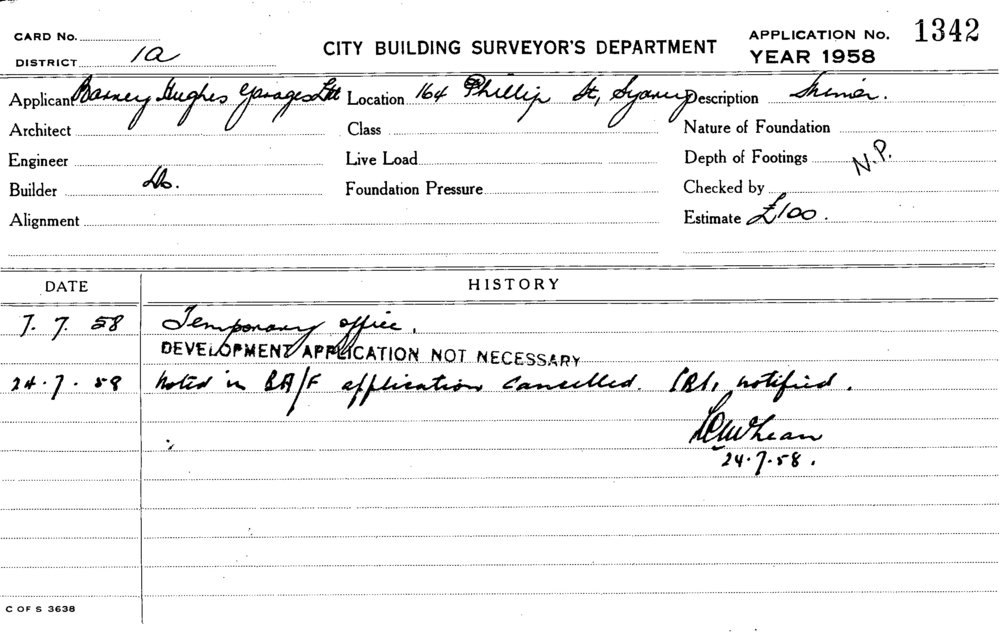 CARD No.
DISTRICT 1a
CITY BUILDING SURVEYOR'S DEPARTMENT
APPLICATION No. 1342
YEAR 1958
Applicant Barney Hughes Garages Ltd Location 164 Phillip St, Sydney Description
Architect Class Nature of Foundation
Engineer Live Load Depth of Footings N.P.
Builder Do. Foundation Pressure Checked by
Alignment Estimate £100.
DATE HISTORY
7. 7. 58 Temporary office.
DEVELOPMENT APPLICATION NOT NECESSARY
24.7.58 Noted in BA/F application cancelled. notified.
24.7.58.
C OF S 3638